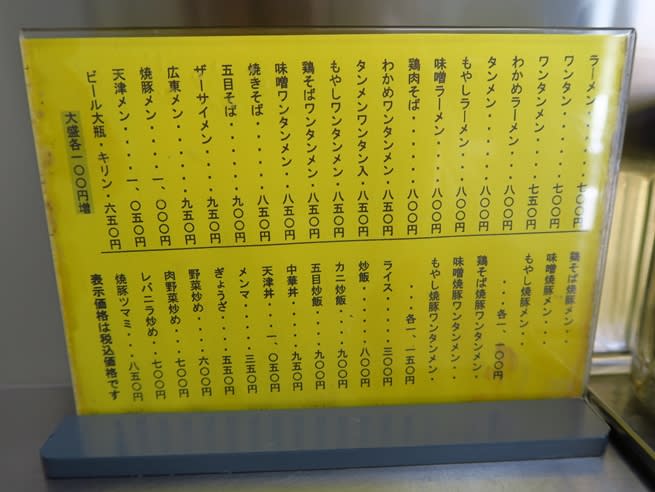 ラーメン・・・・・七〇〇円
ワンタン・・・・・七〇〇円
ワンタンメン・・・七五〇円
わかめラーメン・・八〇〇円
タンメン・・・・・八〇〇円
もやしラーメン・・八〇〇円
味噌ラーメン・・・八〇〇円
鶏肉そば・・・・・八〇〇円
わかめワンタンメン・八五〇円
タンメンワンタン入・八五〇円
もやしワンタンメン・八五〇円
鶏そばワンタンメン・八五〇円
味噌ワンタンメン・・八五〇円
焼きそば・・・・・八五〇円
五目そば・・・・・九〇〇円
ザーサイメン・・・九五〇円
広東メン・・・・・九五〇円
焼豚メン・・・一、〇〇〇円
天津メン・・・・一、〇五〇円
ビール大瓶・キリン・六五〇円
大盛各一〇〇円増
鶏そば焼豚メン・・
味噌焼豚メン・・・
もやし焼豚メン・・
・・・・各一、一〇〇円
鶏そば焼豚ワンタンメン・
味噌焼豚ワンタンメン・・
もやし焼豚ワンタンメン・
・・・・各一、一五〇円
ライス・・・・・三〇〇円
炒飯・・・・・・八〇〇円
カニ炒飯・・・・九〇〇円
五目炒飯・・・・九〇〇円
中華丼・・・・・九五〇円
天津丼・・・一、〇五〇円
メンマ・・・・・三五〇円
ぎょうざ・・・・五五〇円
野菜炒め・・・・六〇〇円
肉野菜炒め・・・七〇〇円
レバニラ炒め・・七〇〇円
焼豚ツマミ・・・八五〇円
表示価格は税込価格です